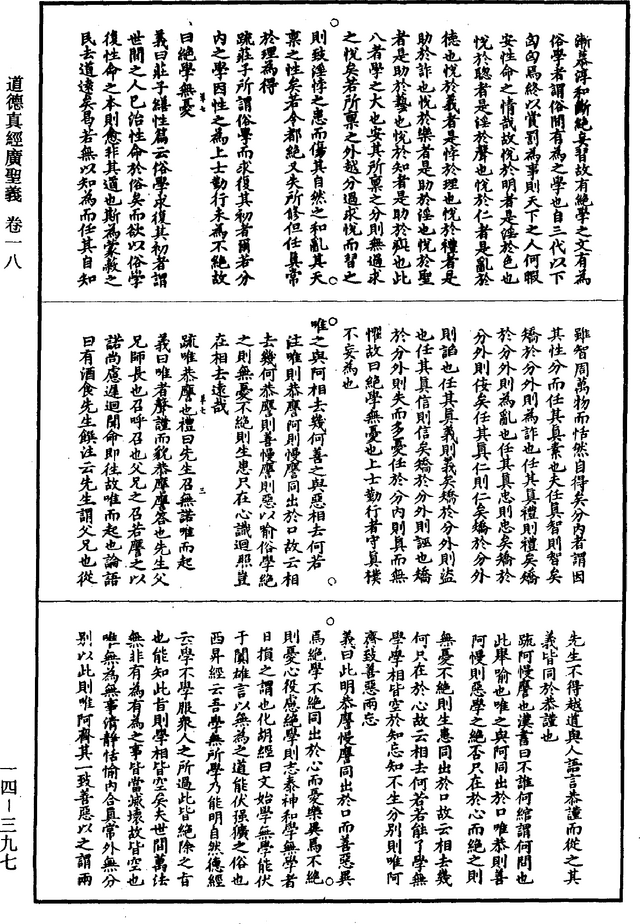 漸慕淳和斷絶異習故有絶學之文有為
俗學者謂俗間有為之學也自三代以下
匈匈焉終以賞罰為事則天下之人何暇
安性命之情哉故悅於明者是淫於色也
悅於聰者是淫於聲也悅於仁者是亂於
德也悅於義者是悖於理也悅於禮者是
助於詐也悅於樂者是助於淫也悅於聖
者是助於藝也悅於知者是助於疵也此
八者學之大也安其所稟之分則無過求
之悅矣若所稟之外越分過求悅而習之
則致淫悖之患而傷其自然之和亂其天
稟之性矣若令都絶又失所修但任真常
於理為得
疏莊子所謂俗學而求復其初者爾若分
內之學因性之為上士勤行未為不絶故
曰絶學無憂
義曰莊子繕性篇云俗學求復其初者謂
世間之人已治性命於俗矣而欲以俗學
復性命之本則愈非其道也斯為蒙蔽之
民去道遠矣曷若無以知為而任其自知
雖智周萬物而恬然自得矣分內者謂因
其性分而任其真素也夫任真智則智矣
矯於分外則為詐也任其真禮則禮矣矯
於分外則為亂也任其真忠則忠矣矯於
分外則佞矣任其真仁則仁矣矯於分外
則諂也任其真義則義矣矯於分外則盜
也任其真信則信矣矯於分外則誣也矯
於分外則失而多憂任於分內則真而無
懼故曰絶學無憂也上士勤行者守真樸
不妄為也
唯之與阿相去幾何善之與惡相去何若
注唯則恭膺阿則慢膺同出於口故云相
去幾何恭膺則善慢膺則惡以喻俗學絶
之則無憂不絶則生患只在心識迴照豈
在相去遠哉
疏唯恭膺也禮曰先生召無諾唯而起
義曰唯者聲謹而貌恭膺膺答也先生父
兄師長也召呼召也父兄之召若膺之以
諾尚慮遲迴聞命即往故唯而起也論語
曰有酒食先生饌注云先生謂父兄也從
先生不得越道與人語言恭謹而從之其
義皆同於恭謹也
疏阿慢膺也漢書曰不誰何綰謂何問也
此舉喻也唯之與阿同出於口唯恭則善
阿慢則惡學之絶否只在於心而絶之則
無憂不絶則生患同出於口故云相去幾
何只在於心故云相去何若若能了學無
學學相皆空於知忘知不生分別則唯阿
齊致善惡兩忘
義曰此明恭膺慢膺同出於口而善惡異
焉絶學不絶同出於心而憂樂異焉不絶
則憂心役慮絶學則志泰神和學無學者
日損之謂也化胡經曰文始學無學能伏
于闐雄言以無為之道能伏強獷之俗也
西昇經云吾學無所學乃能明自然德經
云學不學服衆人之所過此皆絶除之旨
也能知此旨則學相皆空矣夫世間萬法
無非有為有為之事皆當滅壞故皆空也
唯無為無事清靜恬愉內合真常外無分
別以此則唯阿齊其一致善惡以之謂兩
道德真經廣聖義 卷一八
一四－三九七